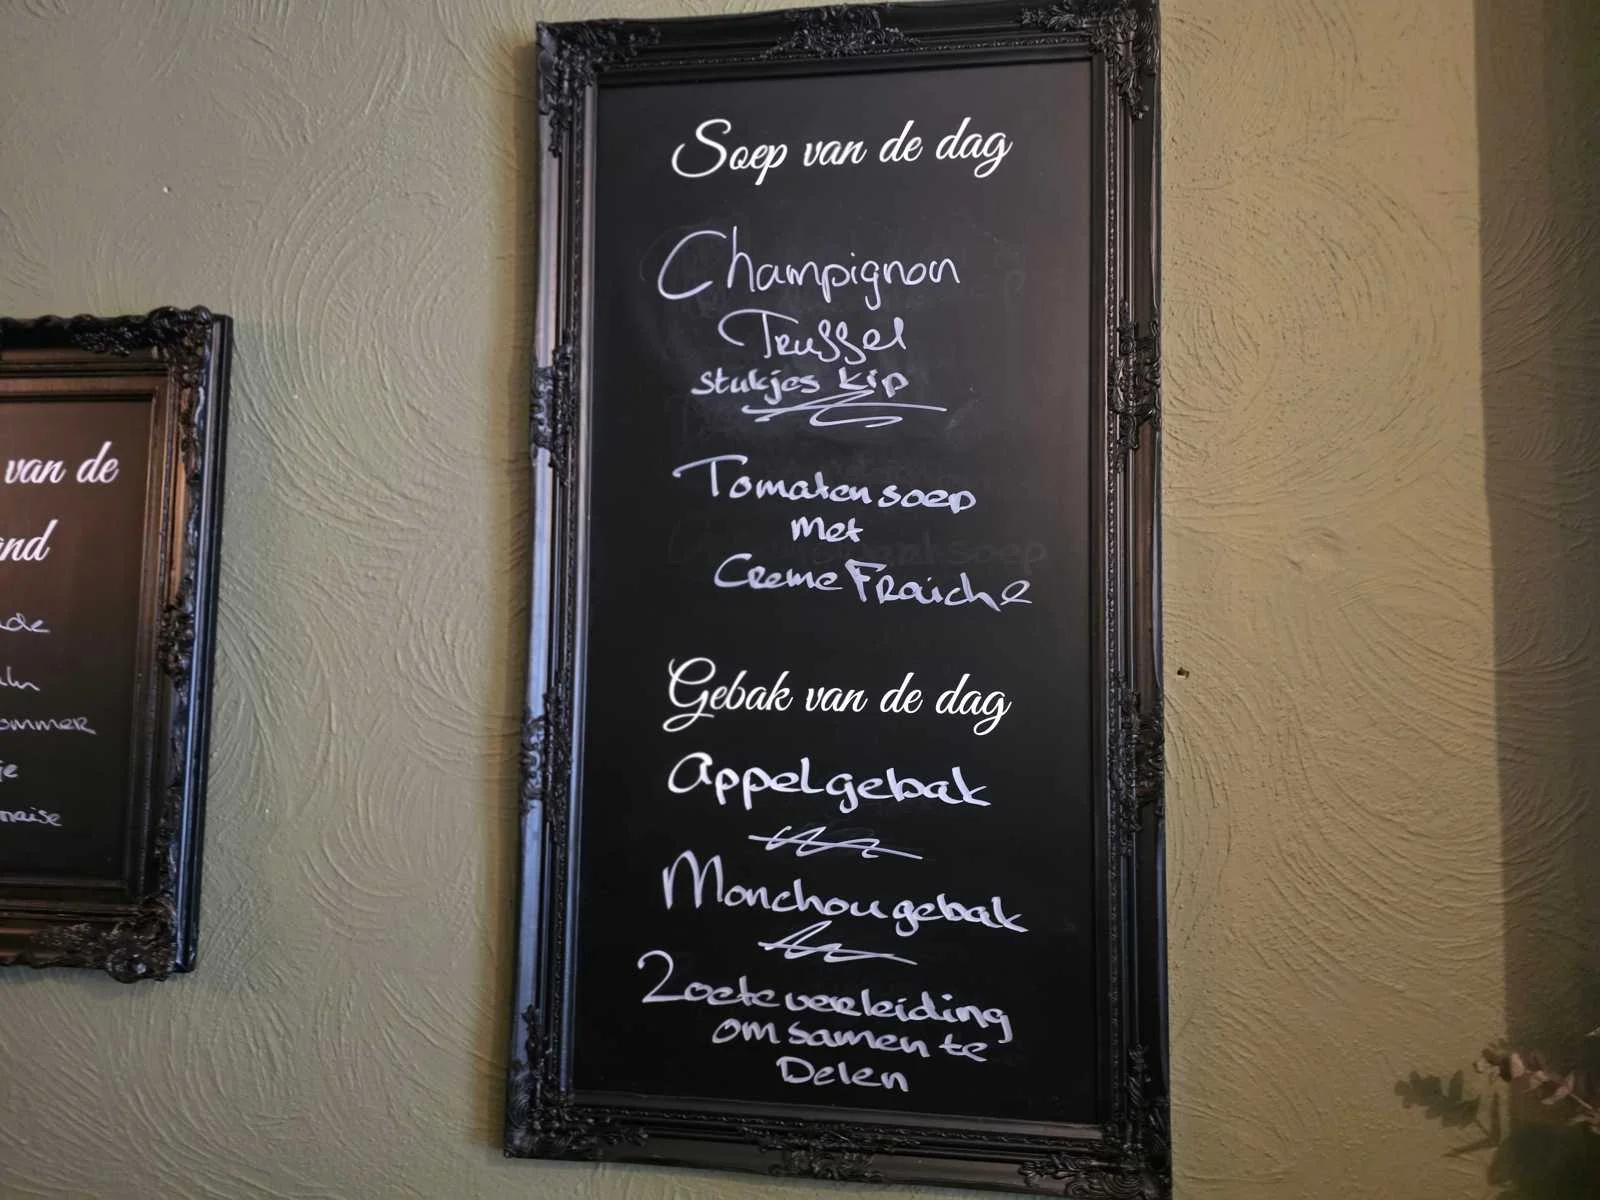 Soep van de dag
Champignon
Truffel
stukjes kip
Tomaten soep
met
Creme Fraiche
Gebak van de dag
appelgebak
Monchou gebak
Zoete verleiding
om samen te
Delen
van de